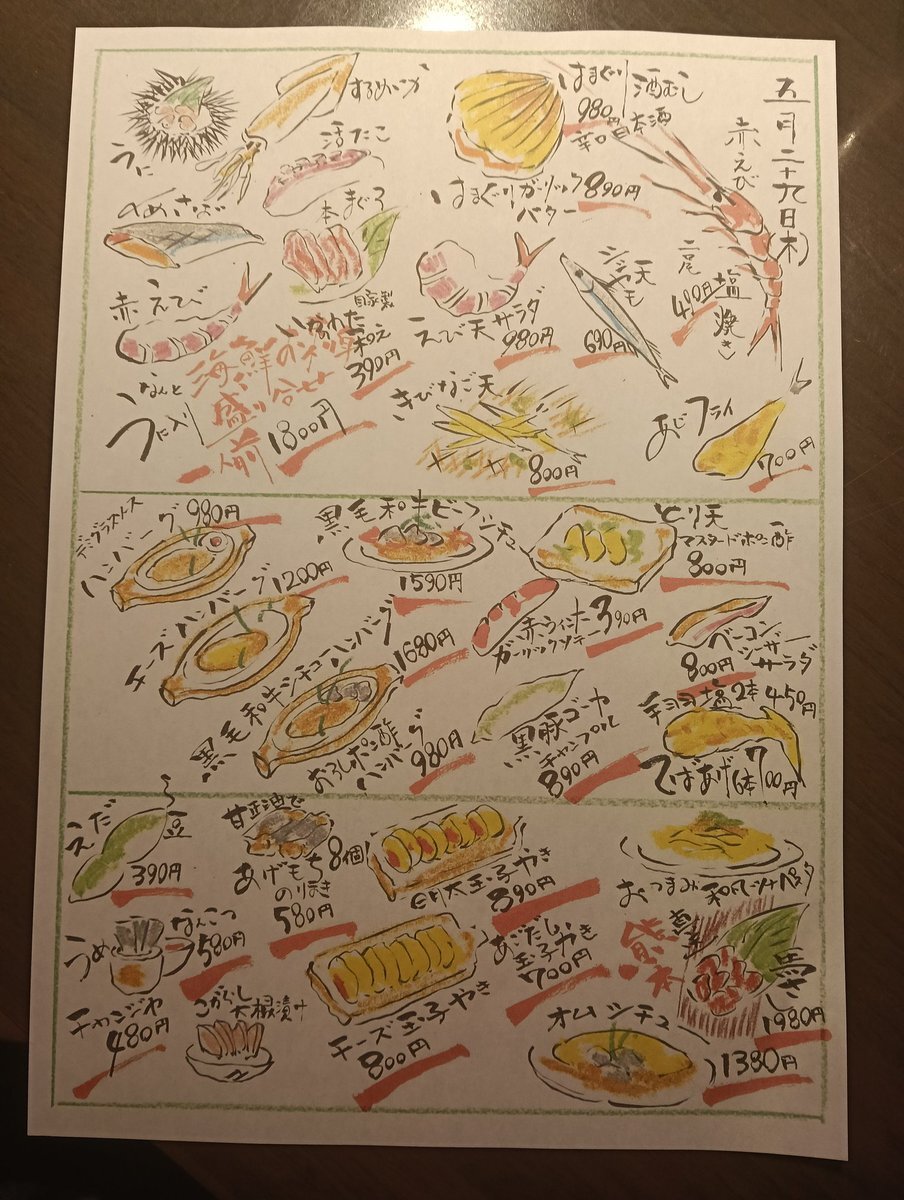 五月二十九日(木)
うに
するめいか
活たこ
本まぐろ
〆めさば
赤えび
自家製
いかわた
和え
390円
海鮮
盛り合せ
一人前
1800円
なんと
うに入り
はまぐり
酒むし
980円
辛口日本酒
はまぐりガーリック
バター
890円
赤えび
二尾
塩焼き
400円
えび天サラダ
980円
シシャモ天
690円
きびなご天
800円
あじフライ
700円
デミグラスソース
ハンバーグ
980円
チーズハンバーグ
1200円
黒毛和牛ビーフ
シチュー
1590円
黒毛和牛シチューハンバーグ
1680円
おろしポン酢
ハンバーグ
980円
とり天
マスタードポン酢
800円
赤ウィンナー
ガーリックソテー
390円
ベーコン
シーザー
サラダ
800円
黒豚ゴーヤ
チャンプル
890円
塩2本450円
てばあげ6本700円
えだ豆
390円
甘正油で
あげもち
のりまき
8個
580円
うめ
なんこつ
580円
チャンジャ
480円
こがらし
大根漬け
明太玉子やき
890円
チーズ玉子やき
800円
あごだし
玉子やき
700円
おつまみ和風パスタ
熊本
直送
馬さし
1980円
オムシチュー
1380円